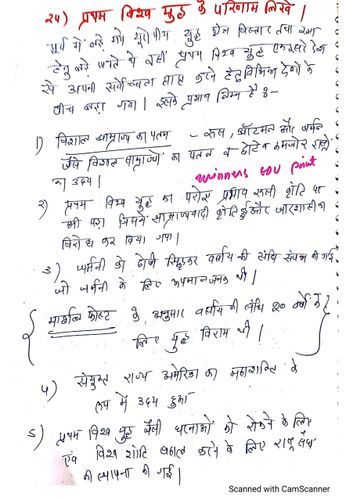 24) प्रथम विश्व युद्ध के परिणाम लिखें |
पूर्व में लड़े गये यूरोपीय युद्ध क्षेत्र विस्तार तथा रक्षा
हेतु लड़े जाते थे वहीं प्रथम विश्व युद्ध एक दूसरे देश
से अपनी सर्वोच्चता साबित करने हेतु विभिन्न देशों के
बीच लड़ा गया | इसके प्रभाव निम्न हैं :-
1) विशाल साम्राज्य का पतन - रूस, ऑटोमन और जर्मन
जैसे विशाल साम्राज्यों का पतन व छोटे व कमजोर राष्ट्रों
का उदय |
winners GOV Point
2) प्रथम विश्व युद्ध का परोक्ष प्रभाव रूसी क्रांति पर
भी पड़ा जिसमें साम्राज्यवादी और जारशाही का
विरोध कर दिया गया |
3) जर्मनी को दोषी वर्साय की संधि की गई
जो जर्मनी के लिए अपमानजनक थी |
के अनुसार वर्साय की संधि 20 वर्षों के
लिए युद्ध विराम थी |
4) संयुक्त राज्य अमेरिका का महाशक्ति के
रूप में उदय हुआ
5) प्रथम विश्व युद्ध जैसी घटनाओं को रोकने के लिए
एवं विश्व शांति बहाल करने के लिए राष्ट्र संघ
की स्थापना की गई |
Scanned with CamScanner